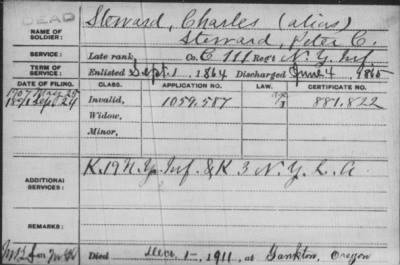 DEAD
NAME OF SOLDIER: Steward, Charles (alias)
Steward, Peter C.
SERVICE: Late rank Co. C 111 Reg't N.Y. Inf.
TERM OF SERVICE: Enlisted Sept. 1, 1864 Discharged June 4, 1865
DATE OF FILING. CLASS. APPLICATION NO. LAW. CERTIFICATE NO.
1907 May 25
1891 Sept 24 Invalid, 1,059,587 881,822
Widow,
Minor,
ADDITIONAL SERVICES: K. 19 N.Y. Inf. & K 3 N.Y. L. A.
REMARKS:
Died Dec. 1-, 1911, at Yankton, Oregon